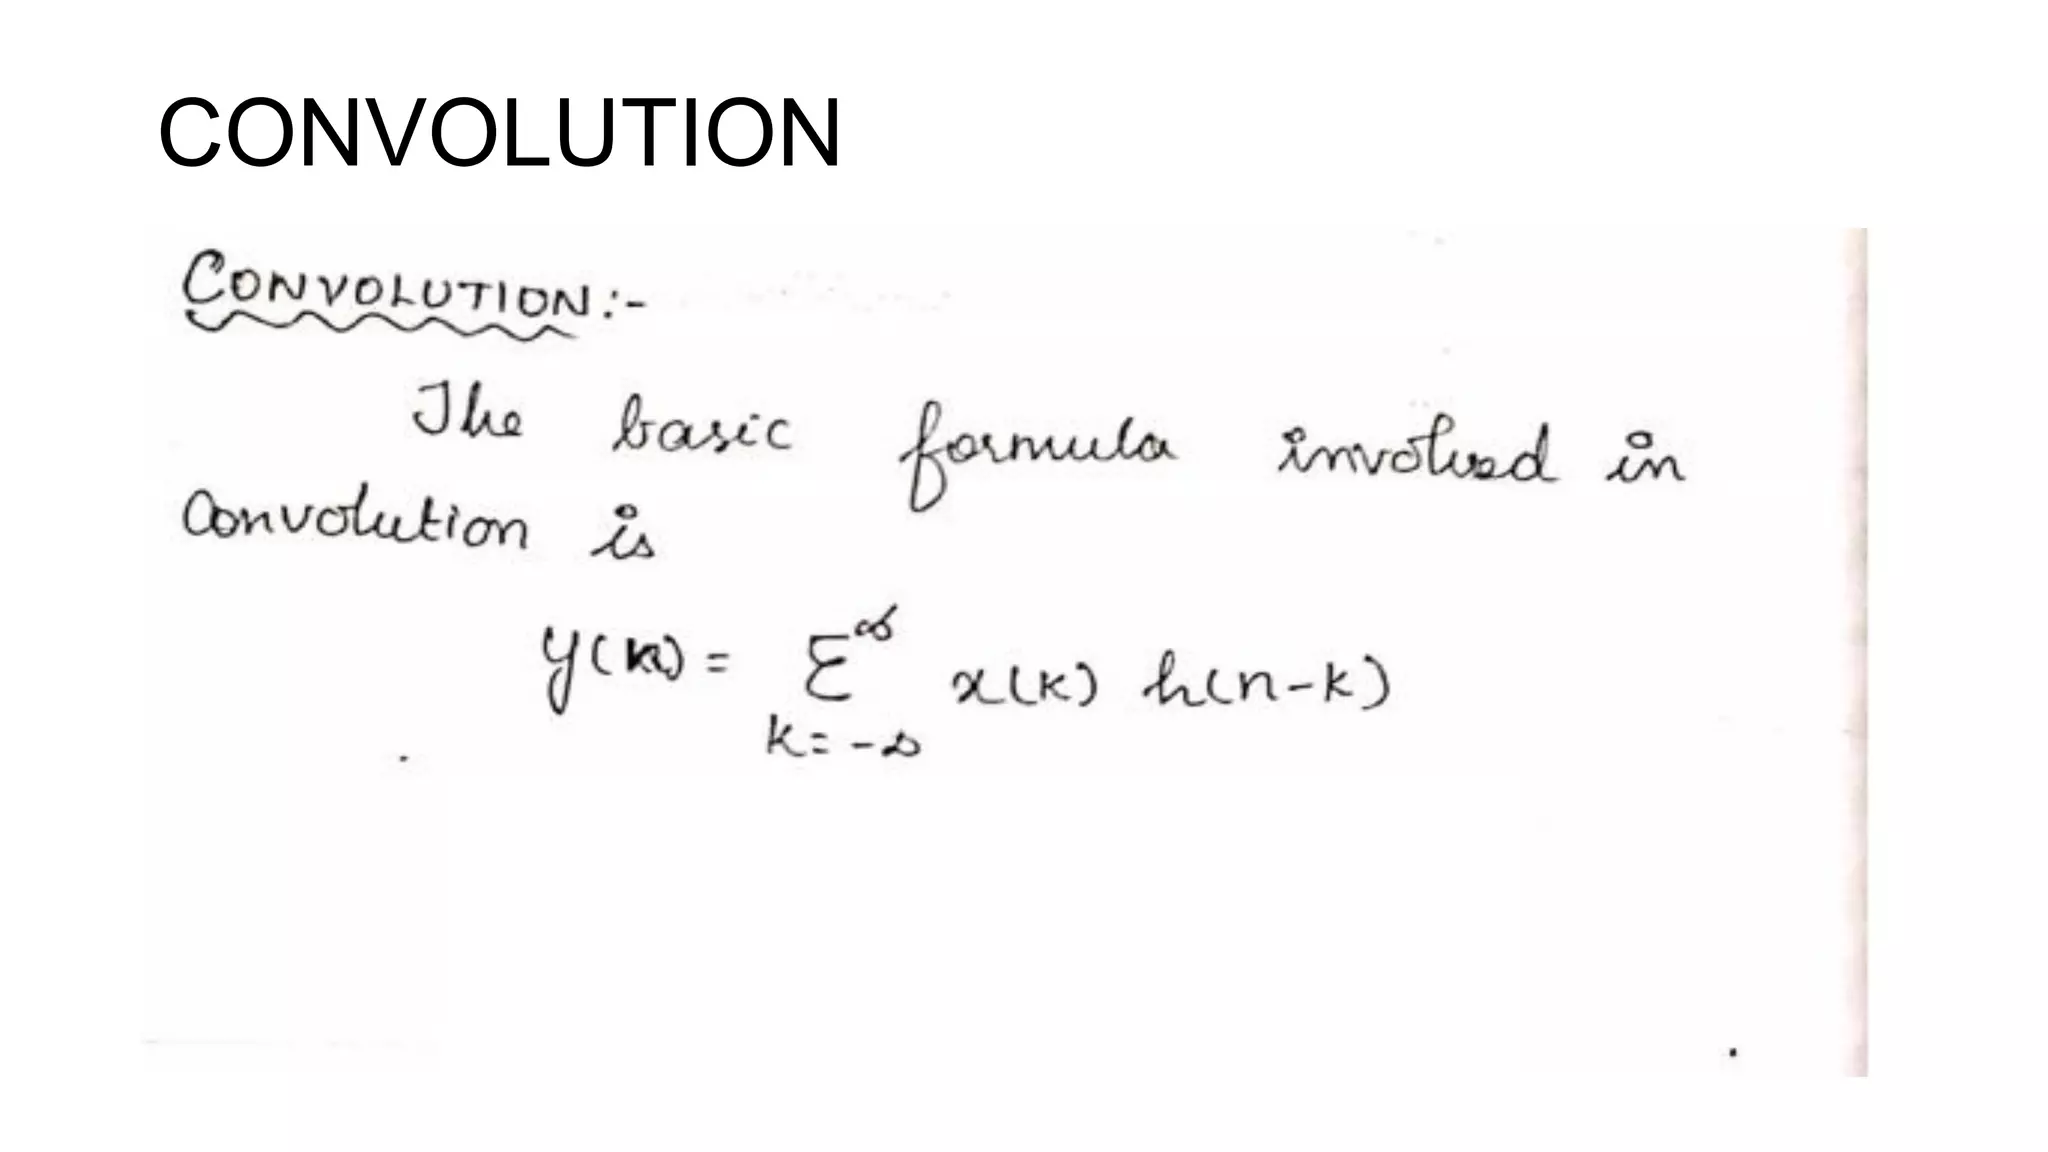 CONVOLUTION
CONVOLUTION:-
The basic formula involved in
Convolution is
y(n) = Σ^∞ x(k) h(n-k)
k=-∞